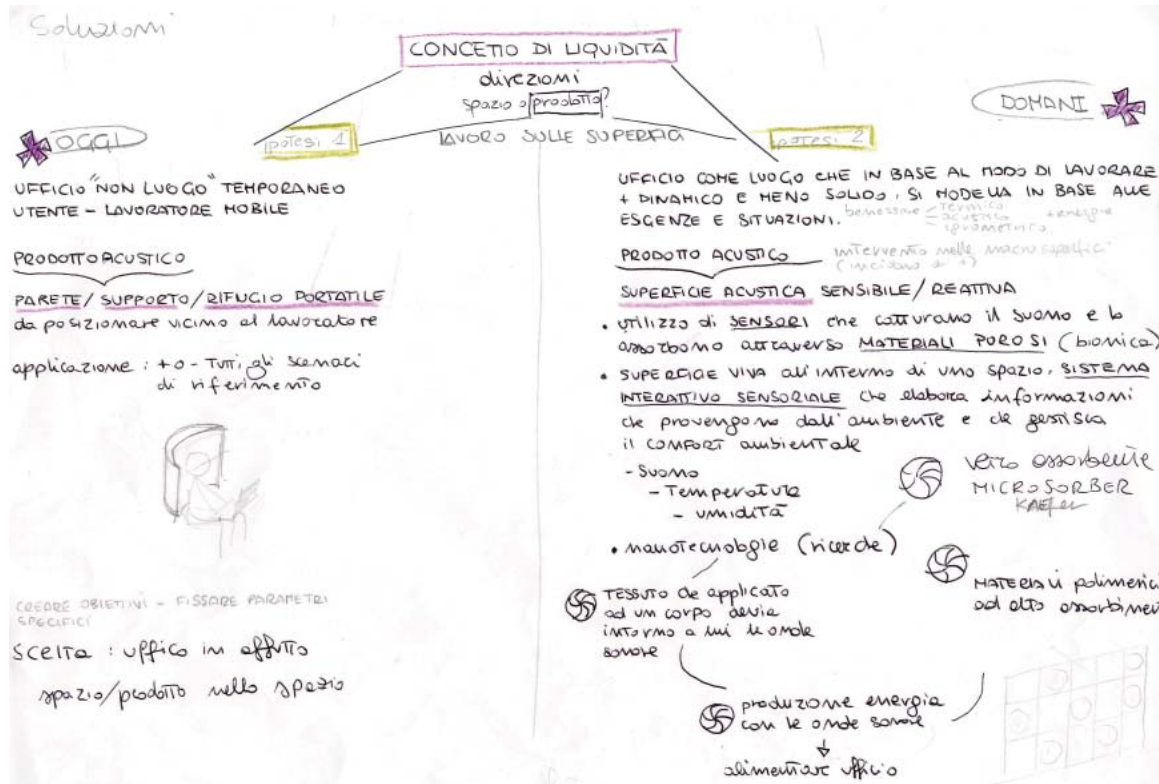 Soluzioni
CONCETTO DI LIQUIDITÀ
direzioni
spazio o prodotto?
LAVORO SULLE SUPERFICI
OGGI
ipotesi 1
UFFICIO "NON LUOGO" TEMPORANEO
UTENTE - LAVORATORE MOBILE
PRODOTTO ACUSTICO
PARETE/SUPPORTO/RIFUGIO PORTATILE
da posizionare vicino al lavoratore
applicazione: + o - TUTTI gli scenari
di riferimento
CREARE OBIETTIVI - FISSARE PARAMETRI
SPECIFICI
SCELTA: ufficio in affitto
spazio/prodotto nello spazio
DOMANI
ipotesi 2
UFFICIO COME LUOGO CHE IN BASE AL MODO DI LAVORARE
+ DINAMICO E MENO SOLIDO, SI MODELLA IN BASE ALLE
ESGENZE E SITUAZIONI.
benessere
termico
acustico
igrometrico
+ energie
PRODOTTO ACUSTICO
intervento nelle macrosuperfici
(incidono + +)
SUPERFICIE ACUSTICA SENSIBILE/REATTIVA
• utilizzo di SENSORI che catturano il suono e lo
assorbono attraverso MATERIALI POROSI (bionica)
• SUPERFICIE VIVA all'interno di uno spazio, SISTEMA
INTERATTIVO SENSORIALE che elabora informazioni
che provengono dall'ambiente e che gestisca
il COMFORT ambientale
- Suono
- Temperatura
- umidità
vetro assorbente
MICROSORBER
KAEFER
• nanotecnologie (ricerche)
TESSUTO che applicato
ad un corpo devia
intorno a lui le onde
sonore
MATERIALI polimerici
ad alto assorbimen
produzione energia
con le onde sonore
alimentare ufficio